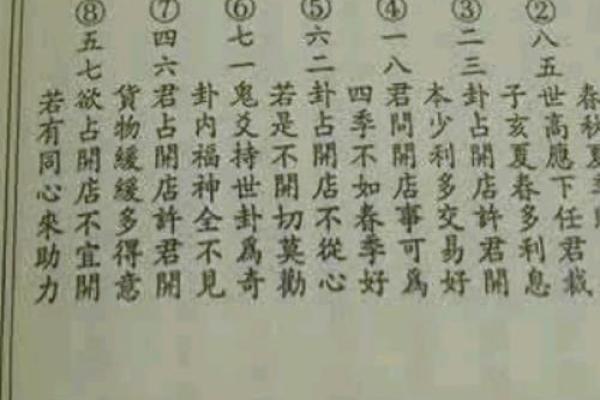 春秋夏季
②八五世高應下任君裁
子亥夏春多利息
③二三卦占開店許君開
本少利多交易好
④一八君問開店事可爲
四季不如春季好
⑤六二卦占開店不從心
若是不開切莫勸
⑥七一鬼爻持世卦爲奇
卦内福神全不見
⑦四六君占開店許君開
貨物緩緩多得意
⑧五七欲占開店不宜開
若有同心來助力